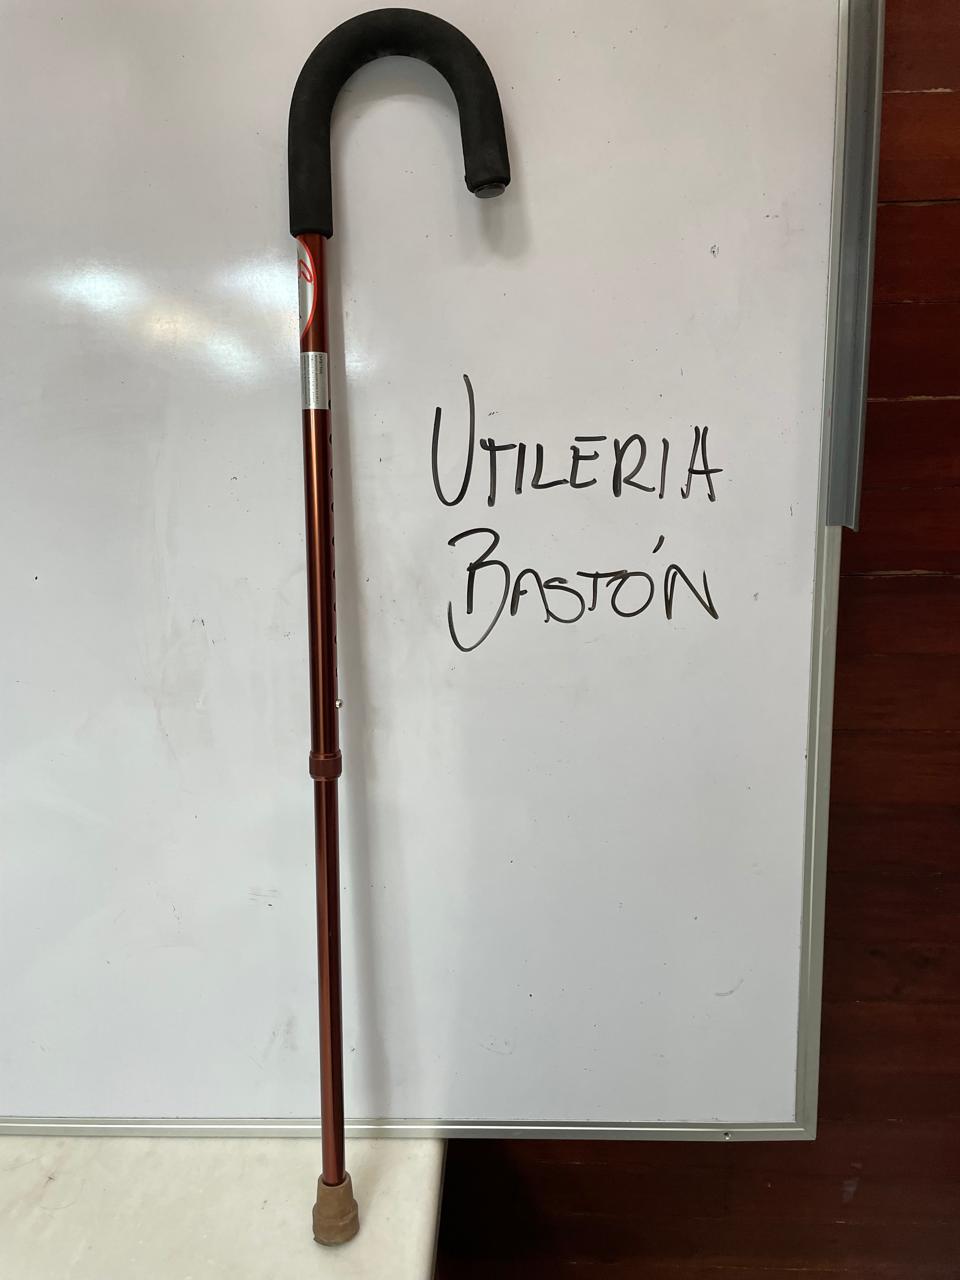 UTILERIA
BASTÓN